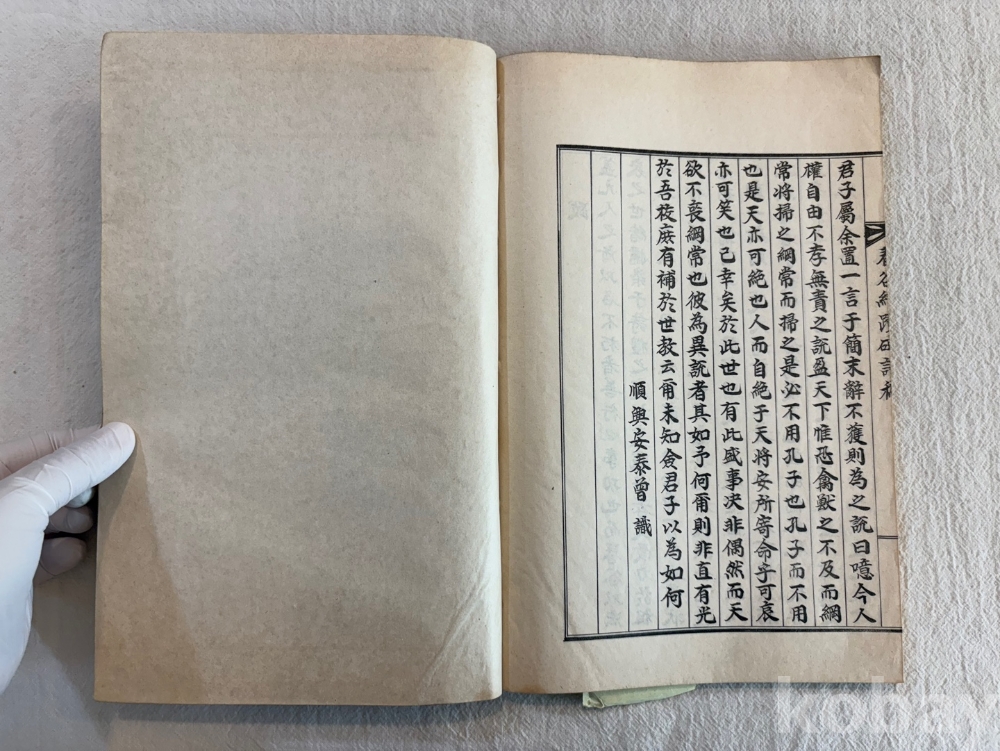 君子屬余置一言于簡末辭不獲則為之說曰噫今人
權自由不孝無責之說盈天下惟恐禽獸之不及而綱
常將掃之綱常而掃之是必不用孔子也孔子而不用
也是天亦可絶也人而自絶于天將安所寄命乎可哀
亦可笑也已幸矣於此世也有此盛事决非偶然而天
欲不喪綱常也彼為異說者其如予何爾則非直有光
於吾校庶有補於世教云爾未知僉君子以為如何
順興安泰曾 識
kobay